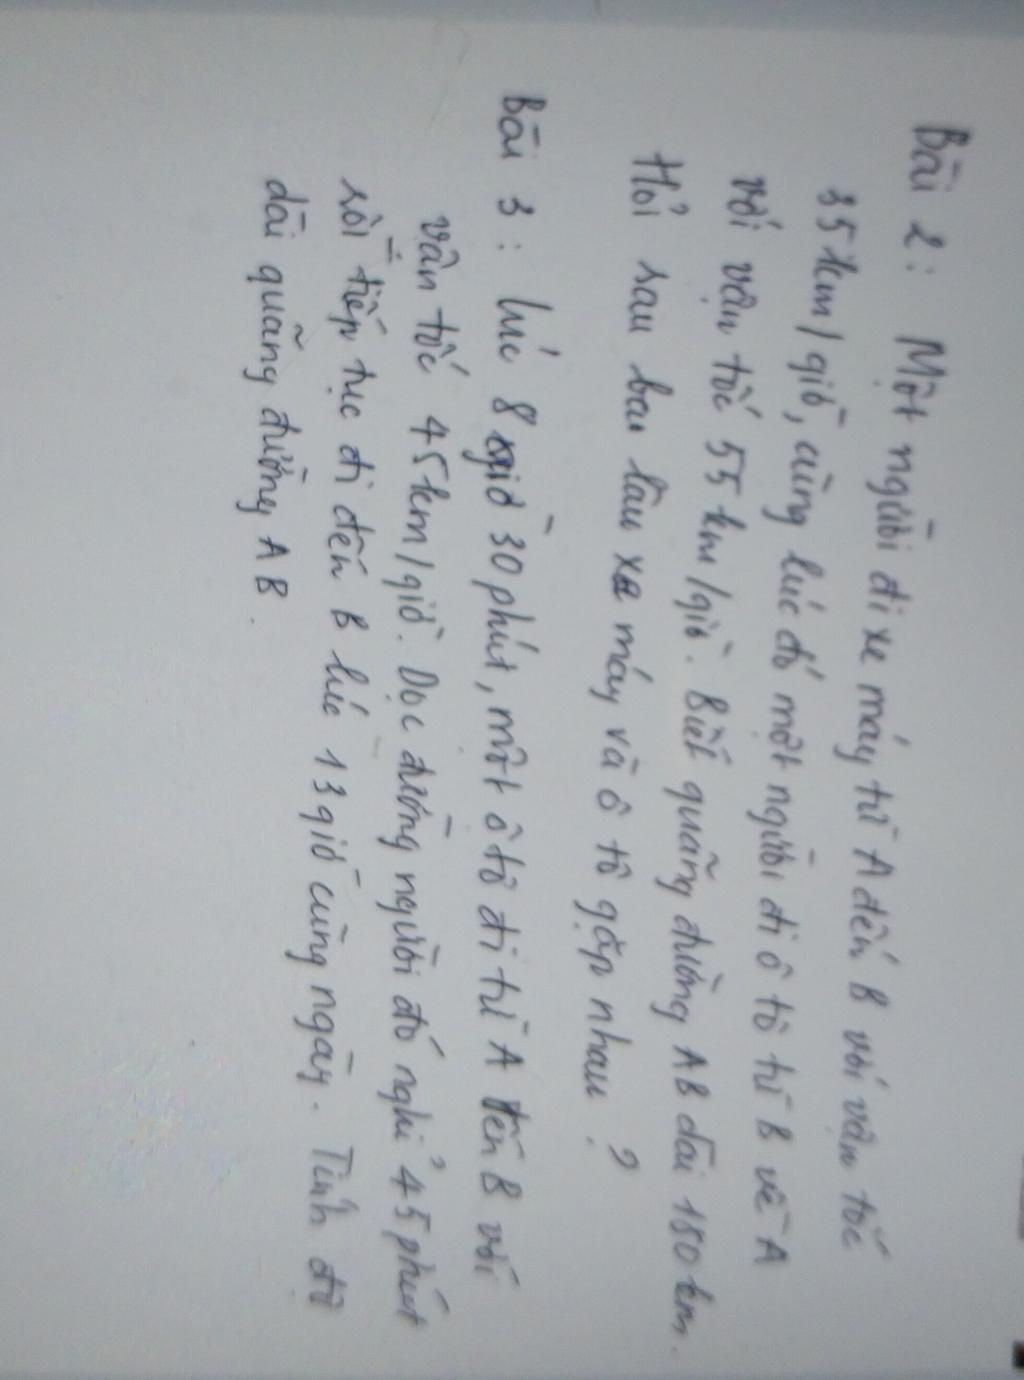 Bài 2: Một người đi xe máy từ A đến B với vận tốc
35 km/giờ, cùng lúc đó một người đi ô tô từ B về A
với vận tốc 55 km/giờ. Biết quãng đường AB dài 180 km.
Hỏi sau bao lâu xe máy và ô tô gặp nhau?
Bài 3: Lúc 8 giờ 30 phút, một ô tô đi từ A đến B với
vận tốc 45 km/giờ. Dọc đường người đó nghỉ 45 phút
rồi tiếp tục đi đến B lúc 13 giờ cùng ngày. Tính độ
dài quãng đường AB.